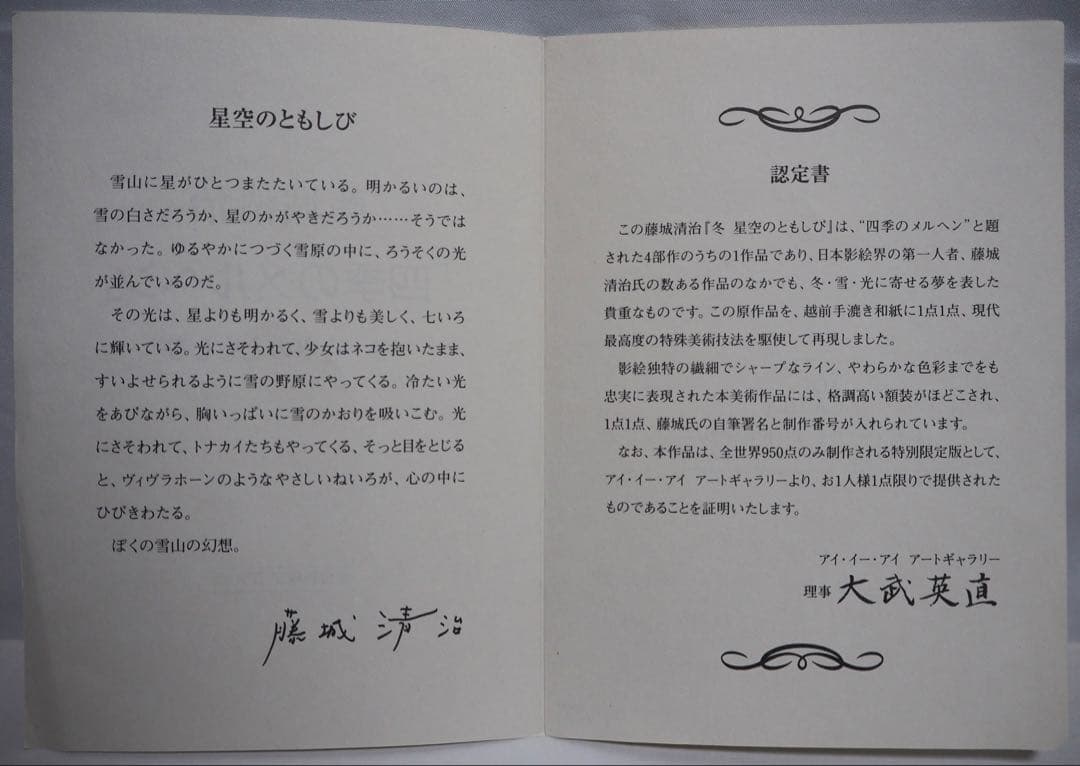 星空のともしび
雪山に星がひとつまたたいている。明かるいのは、
雪の白さだろうか、星のかがやきだろうか……そうでは
なかった。ゆるやかにつづく雪原の中に、ろうそくの光
が並んでいるのだ。
その光は、星よりも明かるく、雪よりも美しく、七いろ
に輝いている。光にさそわれて、少女はネコを抱いたまま、
すいよせられるように雪の野原にやってくる。冷たい光
をあびながら、胸いっぱいに雪のかおりを吸いこむ。光
にさそわれて、トナカイたちもやってくる、そっと目をとじる
と、ヴィヴラホーンのようなやさしいねいろが、心の中に
ひびきわたる。
ぼくの雪山の幻想。
藤城清治
認定書
この藤城清治『冬 星空のともしび』は、“四季のメルヘン”と題
された4部作のうちの1作品であり、日本影絵界の第一人者、藤城
清治氏の数ある作品のなかでも、冬・雪・光に寄せる夢を表した
貴重なものです。この原作品を、越前手漉き和紙に1点1点、現代
最高度の特殊美術技法を駆使して再現しました。
影絵独特の繊細でシャープなライン、やわらかな色彩までをも
忠実に表現された本美術作品には、格調高い額装がほどこされ、
1点1点、藤城氏の自筆署名と制作番号が入れられています。
なお、本作品は、全世界950点のみ制作される特別限定版として、
アイ・イー・アイ アートギャラリーより、お1人様1点限りで提供された
ものであることを証明いたします。
アイ・イー・アイ アートギャラリー
理事 大武英直